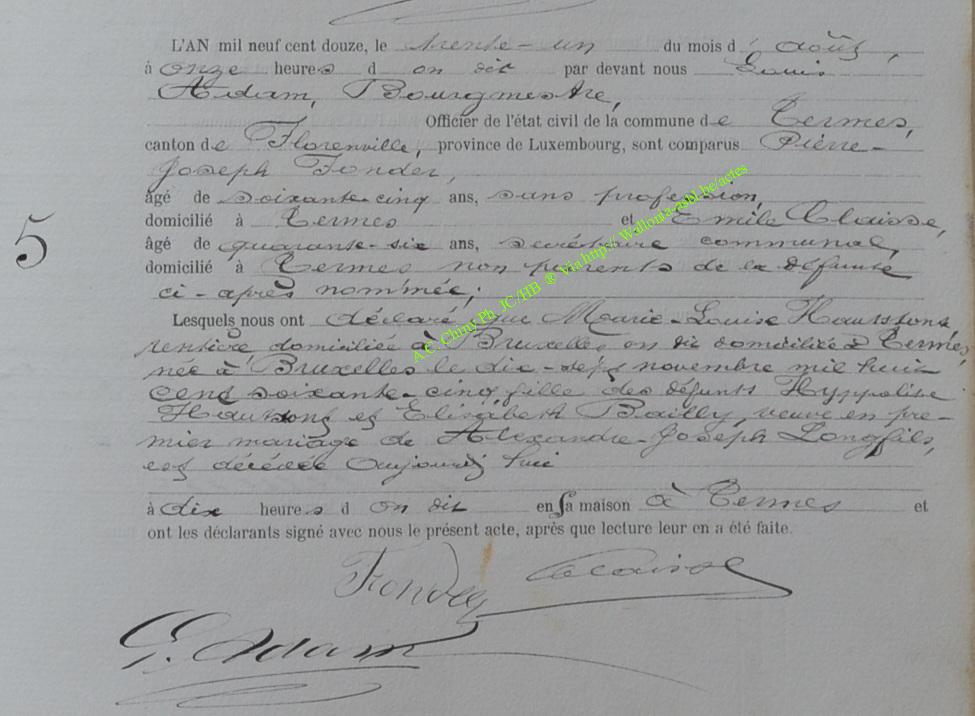 L'AN mil neuf cent douze, le trente-un du mois d'août,
à onze heures d on dit par devant nous Louis
Adam, Bourgmestre,
Officier de l'état civil de la commune de Termes,
canton de Florenville, province de Luxembourg, sont comparus Pierre-
Joseph Fonder,
âgé de soixante-cinq ans, sans profession,
domicilié à Termes et Emile Claisse,
5
âgé de quarante-six ans, secrétaire communal,
domicilié à Termes non parents de la défunte
ci-après nommée;
Lesquels nous ont déclaré que Marie-Louise
rentière domiciliée à Bruxelles on dit domiciliée à Termes,
née à Bruxelles le dix-sept novembre mil huit
cent soixante-cinq fille des défunts Hyppolite
et Elisabeth Bailly, veuve en pre-
mier mariage de Alexandre-Joseph Longfils,
est décédée aujourd'hui
à dix heures d on dit en sa maison à Termes et
ont les déclarants signé avec nous le présent acte, après que lecture leur en a été faite.
Fonder
G. Adam
A.C. Chiny Ph. JC/HB ® Via.http// Wallouta.asbl.be/actes